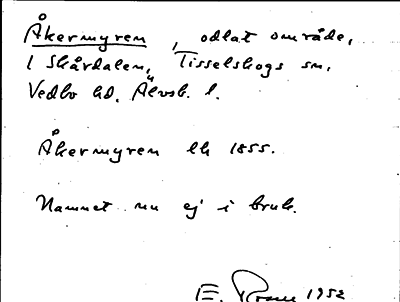 Åkermyren, odlat område,
i Skårdalen, Tisselskogs sn,
Vedbo hd, Älvsb. l.
Åkermyren lh 1855.
Namnet nu ej i bruk.
E. 1952